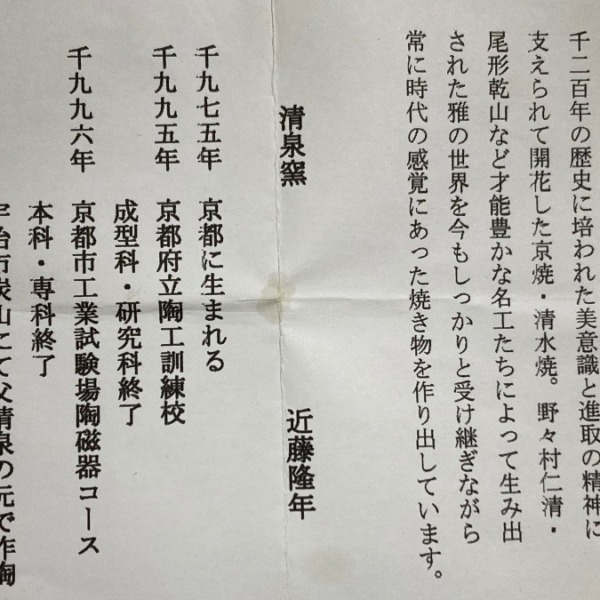 千二百年の歴史に培われた美意識と進取の精神に
支えられて開花した京焼・清水焼。野々村仁清・
尾形乾山など才能豊かな名工たちによって生み出
された雅の世界を今もしっかりと受け継ぎながら
常に時代の感覚にあった焼き物を作り出しています。
清泉窯 近藤隆年
千九七五年 京都に生まれる
千九九五年 京都府立陶工訓練校
成型科・研究科終了
千九九六年 京都市工業試験場陶磁器コース
本科・専科終了
宇治市炭山にて父清泉の元で作陶